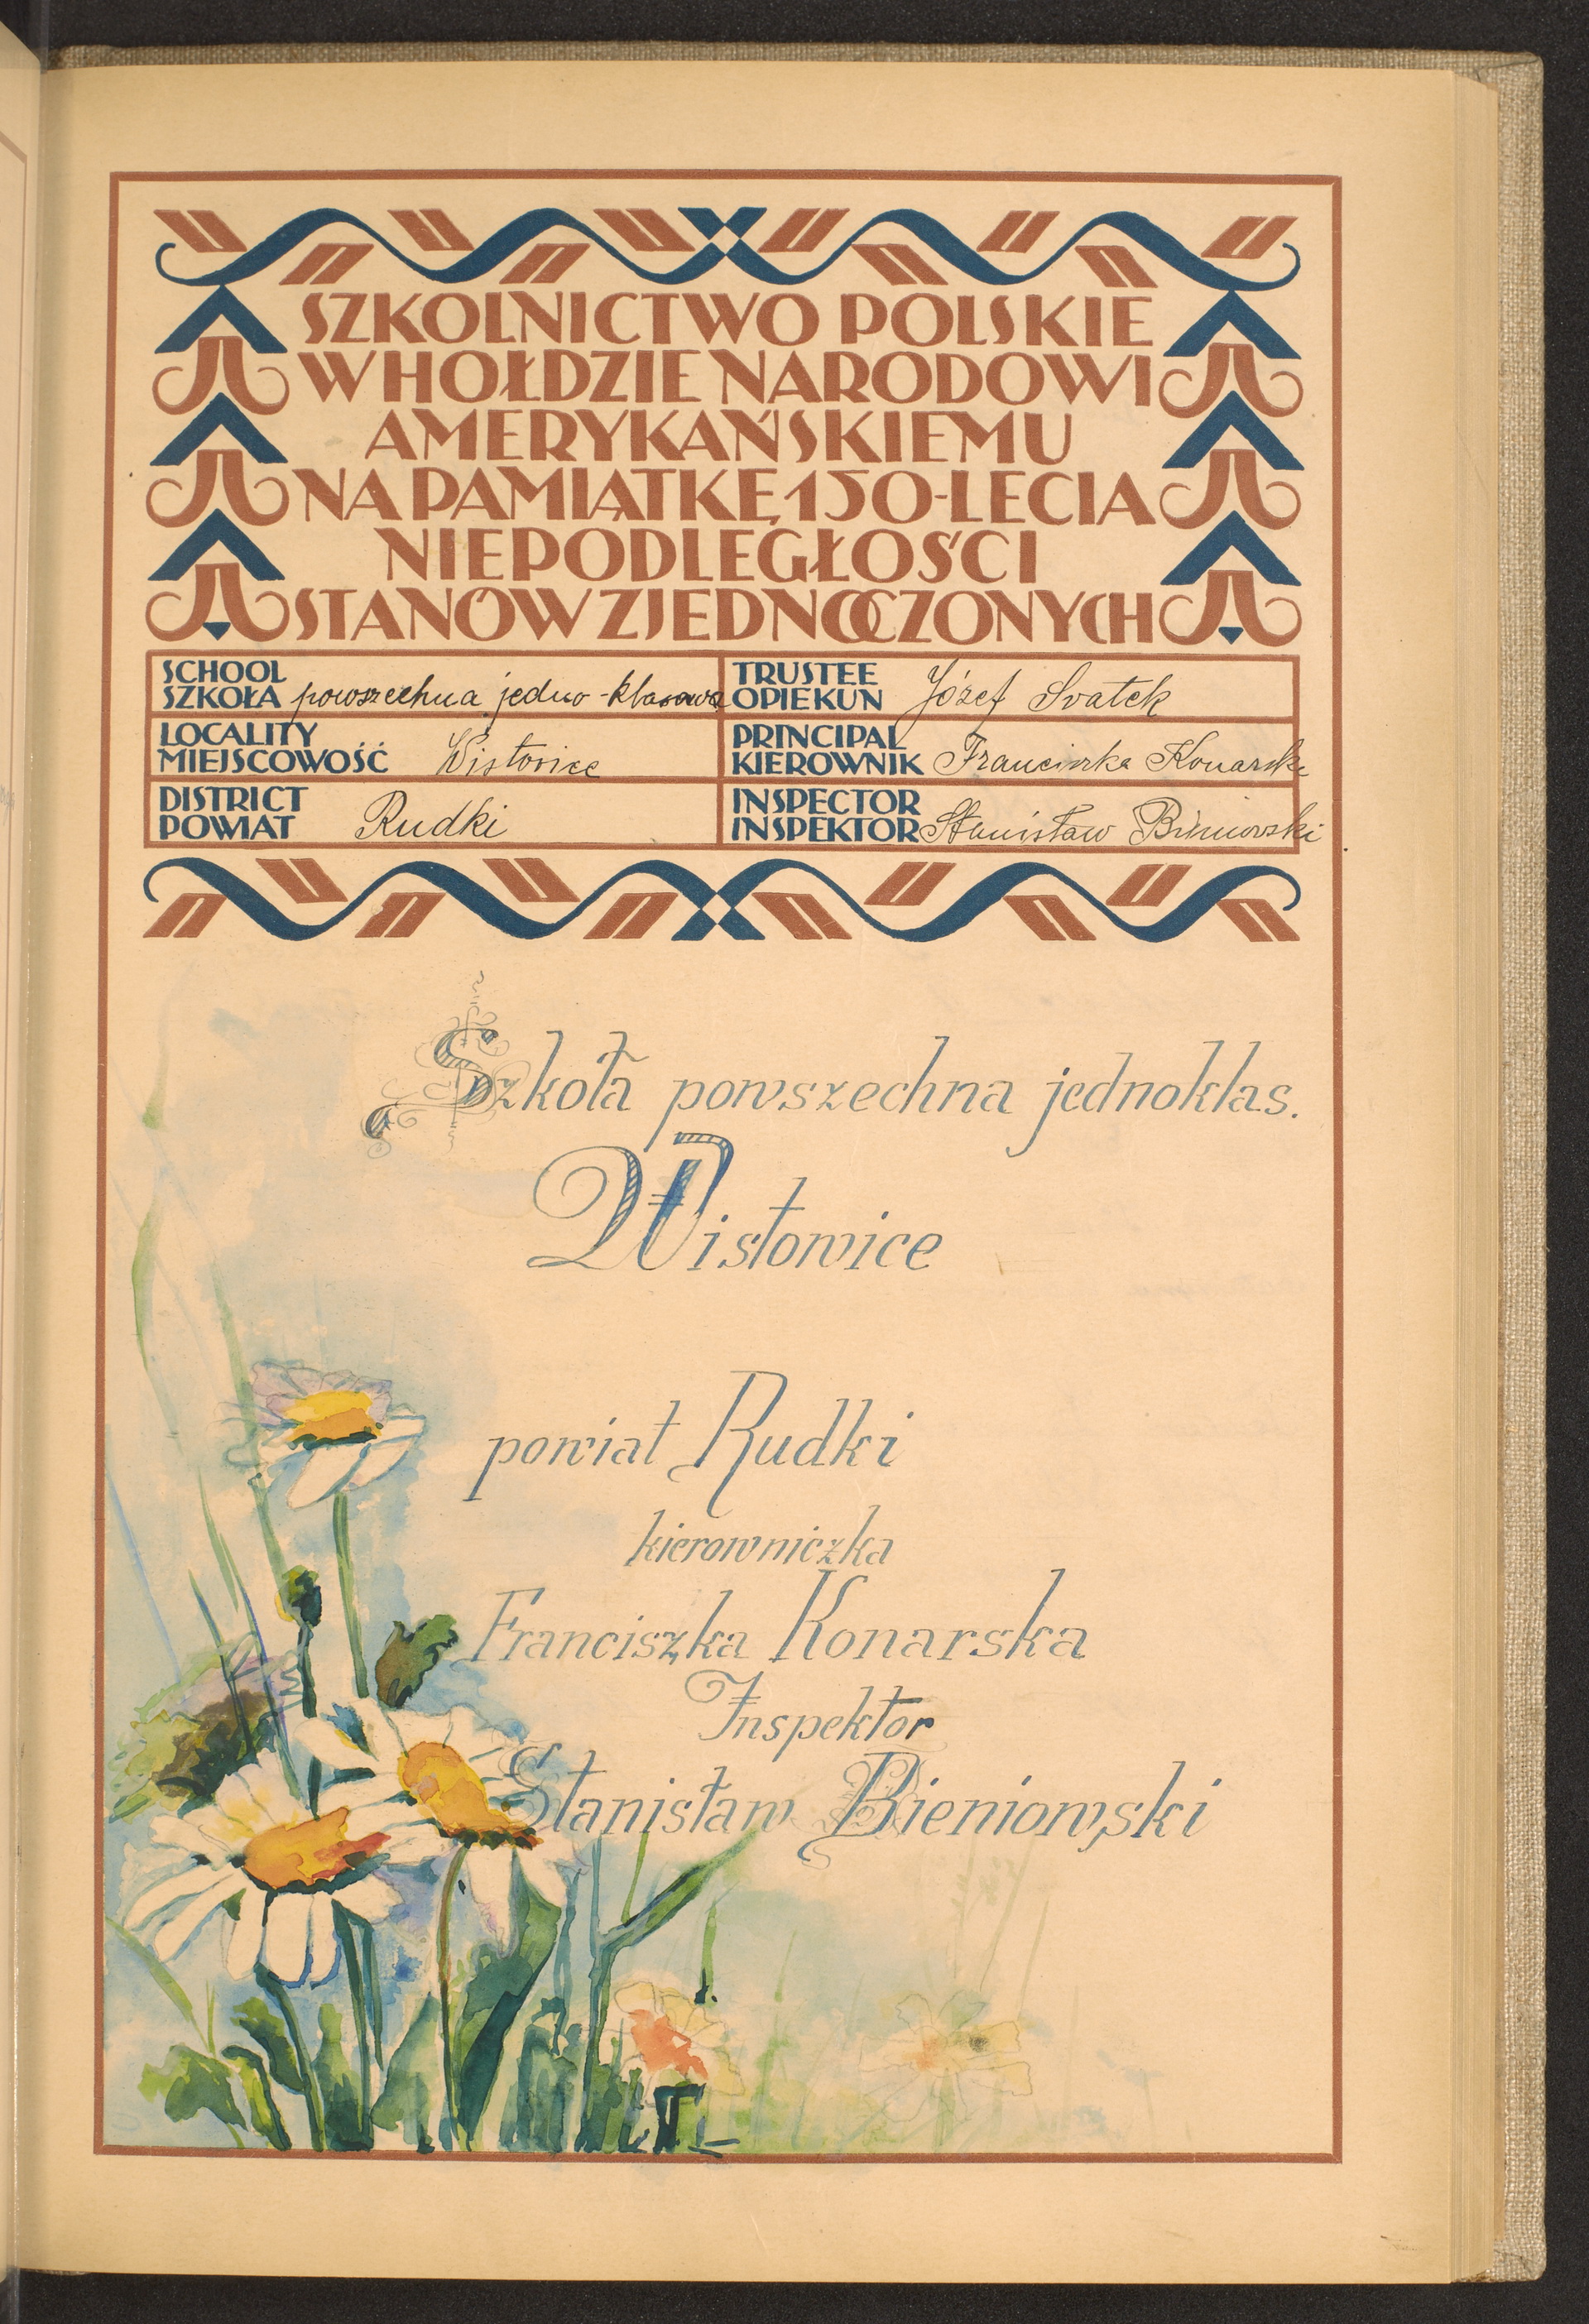 SZKOLNICTWO POLSKIE
W HOŁDZIE NARODOWI
AMERYKAŃSKIEMU
NA PAMIĄTKĘ 150-LECIA
NIEPODLEGŁOŚCI
STANÓW ZJEDNOCZONYCH
SCHOOL
SZKOŁA powszechna jedno-klasowa
TRUSTEE
OPIEKUN Józef Svatek
LOCALITY
MIEJSCOWOŚĆ Wistowice
PRINCIPAL
KIEROWNIK Franciszka Konarska
DISTRICT
POWIAT Rudki
INSPECTOR
INSPEKTOR Stanisław Bieniowski
Szkoła powszechna jednoklas.
Wistowice
powiat Rudki
kierowniczka
Franciszka Konarska
Inspektor
Stanisław Bieniowski